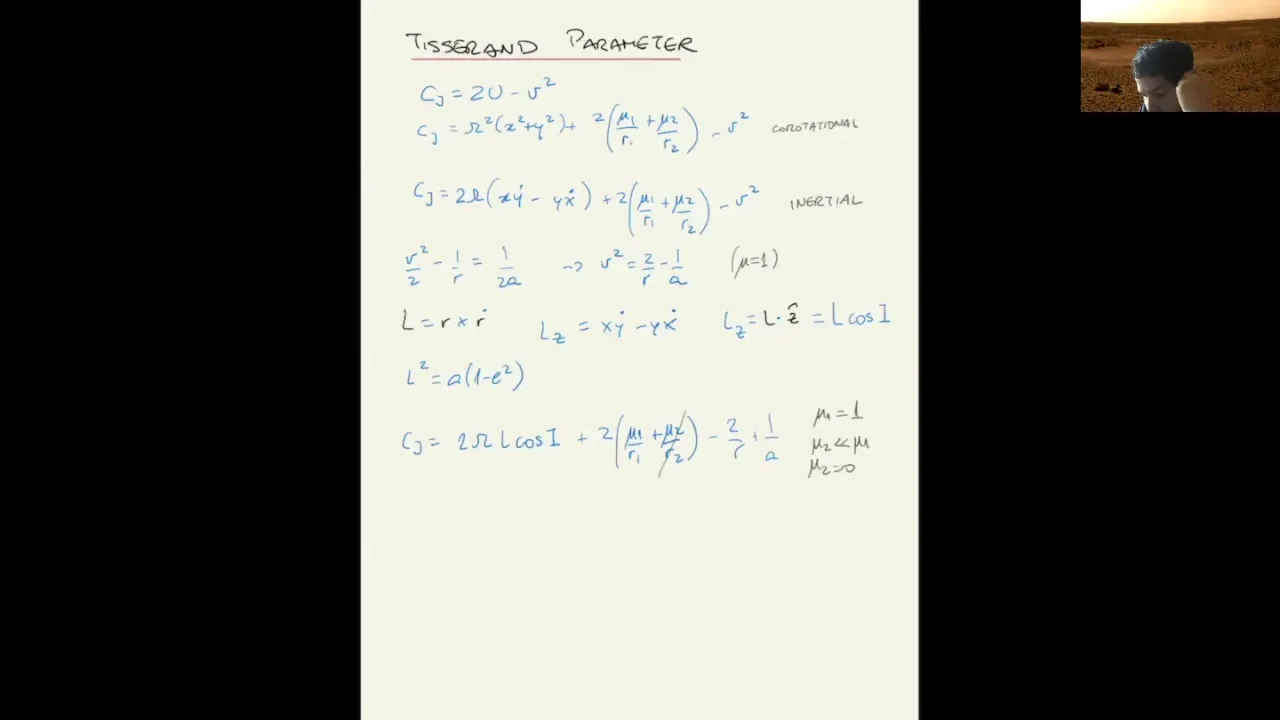 TISSERAND PARAMETER
C_J = 2U - v²
C_J = Ω²(x²+y²) + 2(μ₁/r₁ + μ₂/r₂) - v² COROTATIONAL
C_J = 2Ω(xẏ - yẋ) + 2(μ₁/r₁ + μ₂/r₂) - v² INERTIAL
v²/2 - 1/r = 1/2a → v² = 2/r - 1/a (μ=1)
L = r × ṙ L_z = xẏ - yẋ L_z = L · ẑ = L cos I
L² = a(1-e²)
C_J = 2Ω L cos I + 2(μ₁/r₁ + μ₂/r₂) - 2/r + 1/a
μ₁ = 1
μ₂ ≪ μ₁
μ₂=0